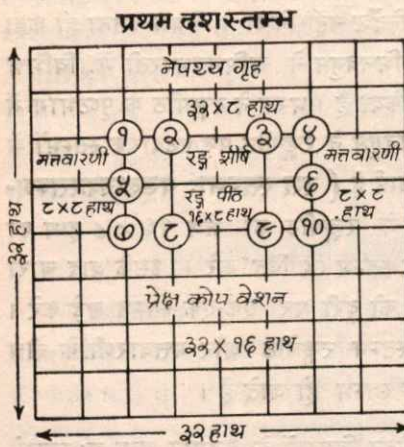 प्रथम दशस्तम्भ
नेपथ्य गृह
३२×८ हाथ
१ २ ३ ४
मत्तवारणी रङ्ग शीर्ष मत्तवारणी
५ ६
८×८ हाथ रङ्ग पीठ ८×८
१६×८ हाथ हाथ
७ ८ ९ १०
प्रेक्ष कोप वेशन
३२×१६ हाथ
३२ हाथ
३२ हाथ